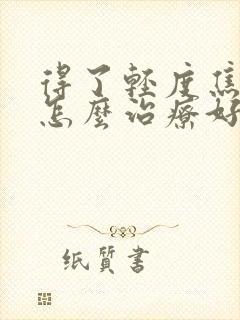 得了輕度焦
怎麼治療好
纸質書